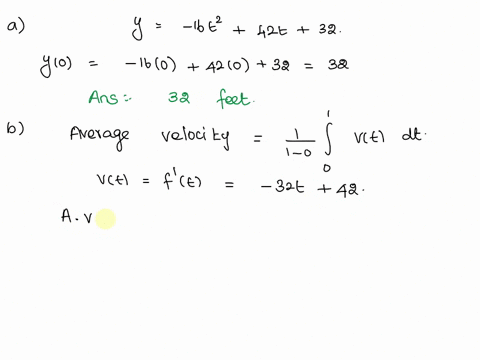 a) y = -16t² + 42t + 32.
y(0) = -16(0) + 42(0) + 32 = 32
Ans:- 32 feet.
b) Average velocity = 1/(1-0) ∫₀¹ v(t) dt.
v(t) = f'(t) = -32t + 42.
A.v